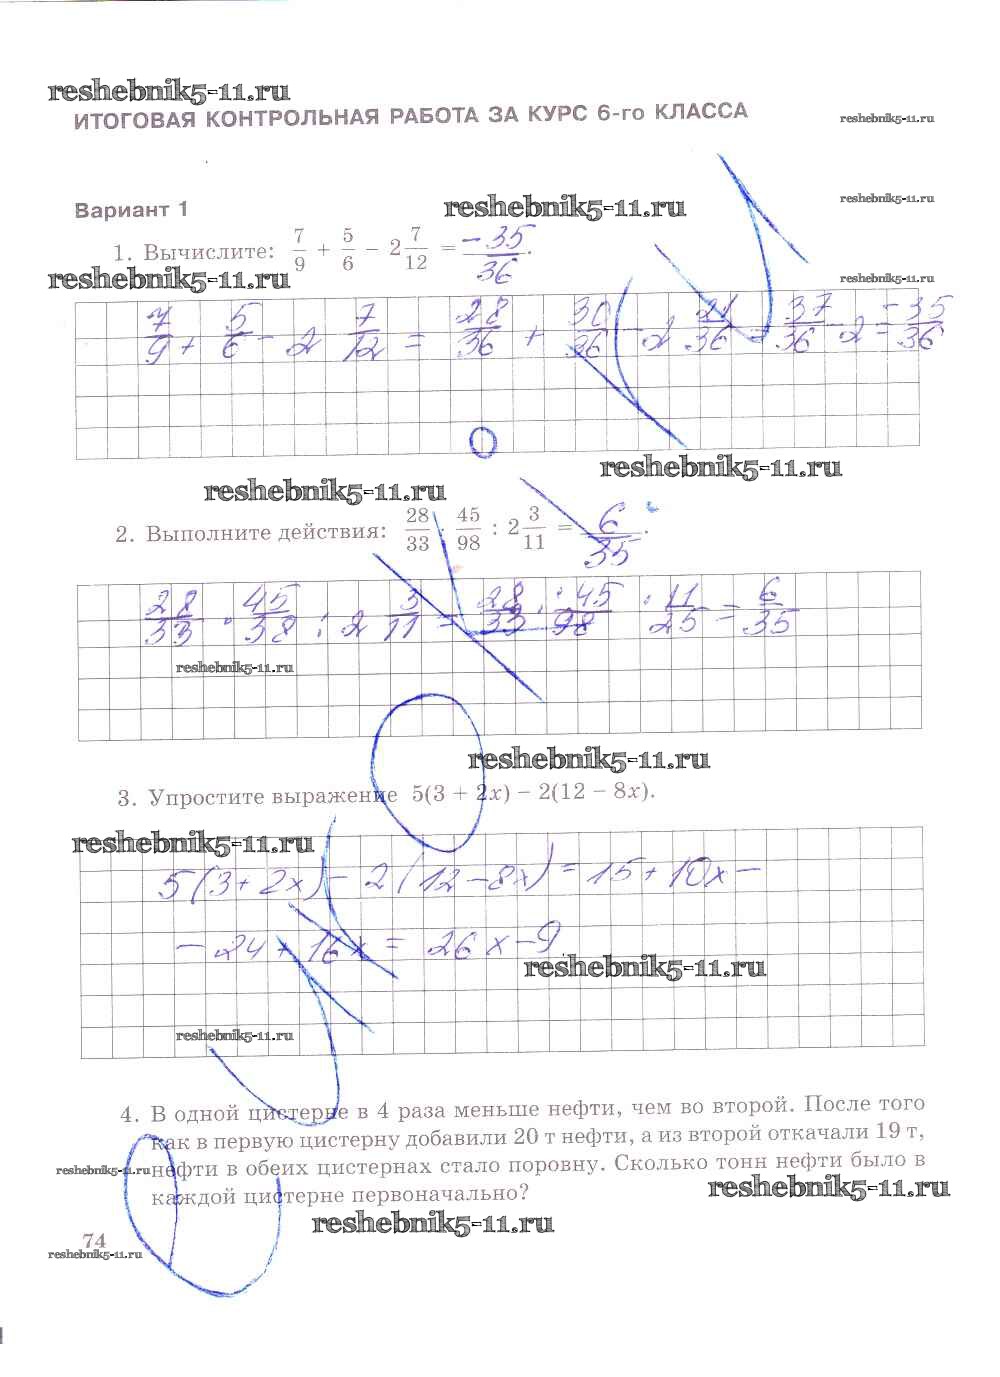 reshebnik5-11.ru
ИТОГОВАЯ КОНТРОЛЬНАЯ РАБОТА ЗА КУРС 6-го КЛАССА
reshebnik5-11.ru
Вариант 1
reshebnik5-11.ru
reshebnik5-11.ru
1. Вычислите: 7/9 + 5/6 − 2 7/12 = −35/36.
reshebnik5-11.ru
reshebnik5-11.ru
7/9 + 5/6 − 2 7/12 = 28/36 + 30/36 − 2 21/36 = 37/36 − 2 = −35/36
reshebnik5-11.ru
reshebnik5-11.ru
2. Выполните действия: 28/33 · 45/98 : 2 3/11 = 6/35.
28/33 · 45/38 : 2 3/11 = 28/33 · 45/98 : 11/25 = 6/35
reshebnik5-11.ru
reshebnik5-11.ru
3. Упростите выражение 5(3 + 2x) − 2(12 − 8x).
reshebnik5-11.ru
5(3+2x) − 2(12−8x) = 15 + 10x −
− 24 + 16x = 26x − 9
reshebnik5-11.ru
reshebnik5-11.ru
4. В одной цистерне в 4 раза меньше нефти, чем во второй. После того
как в первую цистерну добавили 20 т нефти, а из второй откачали 19 т,
reshebnik5-11.ru
нефти в обеих цистернах стало поровну. Сколько тонн нефти было в
каждой цистерне первоначально?
reshebnik5-11.ru
reshebnik5-11.ru
74
reshebnik5-11.ru